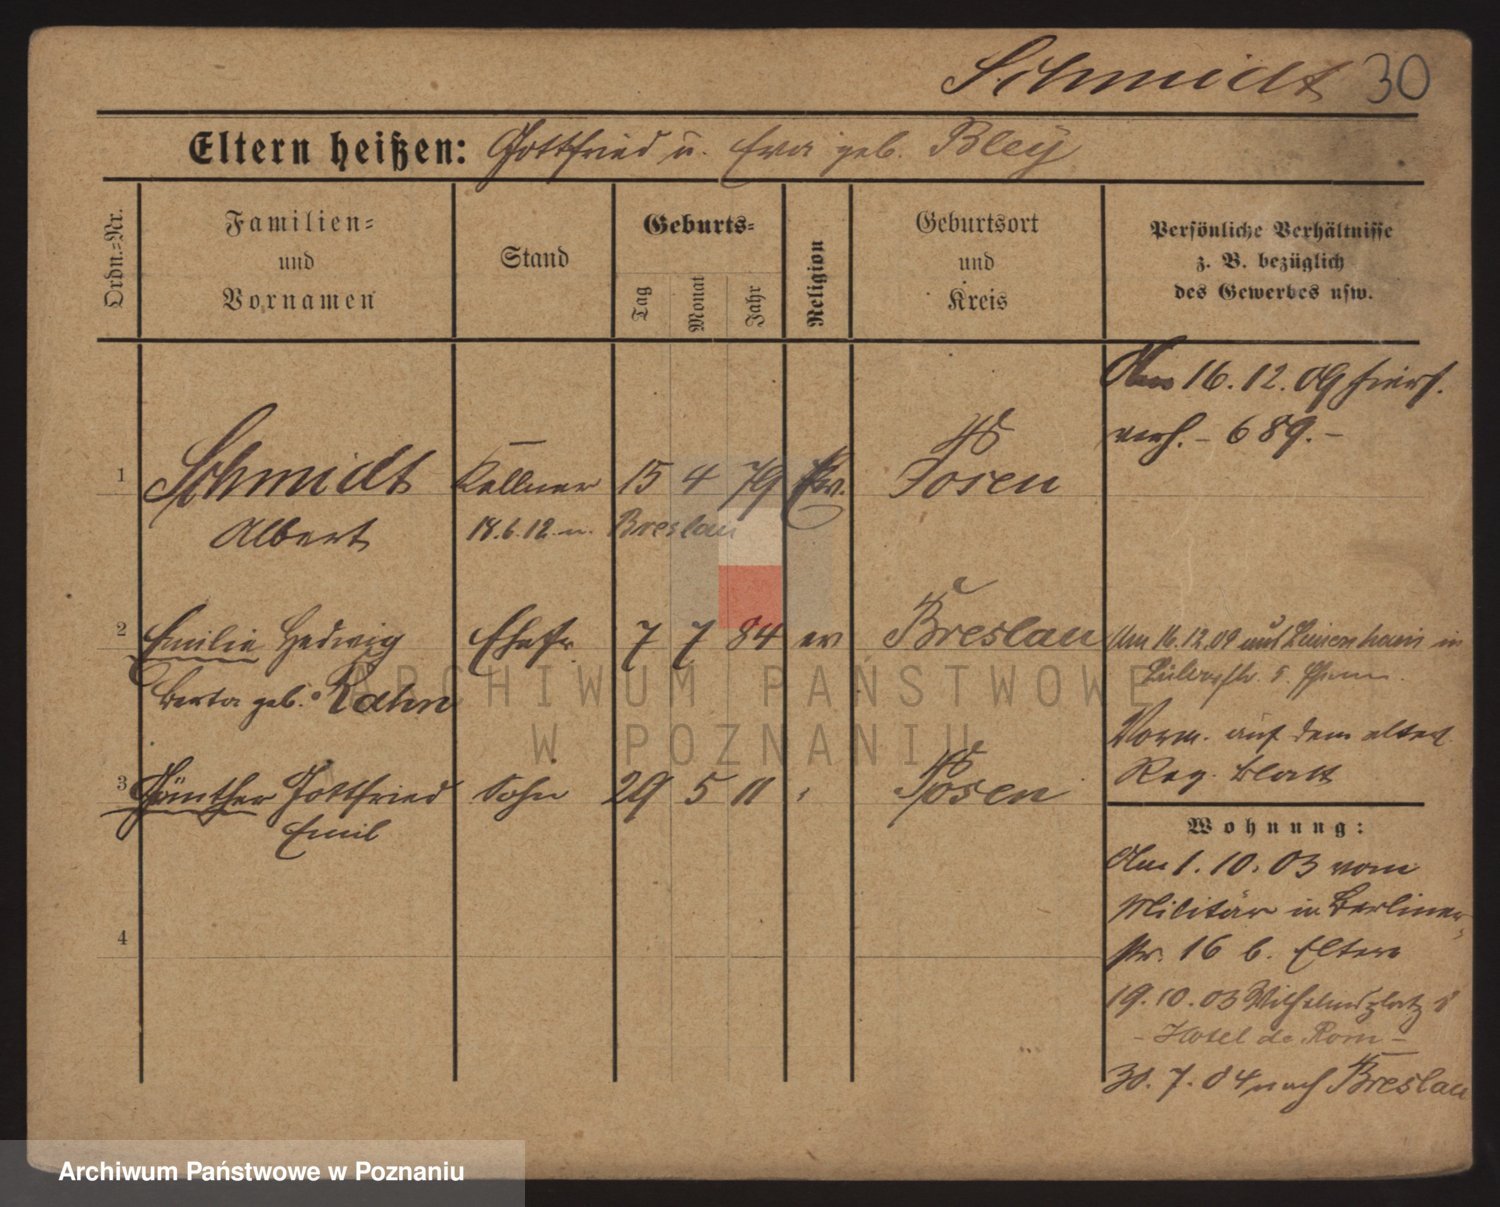 Schmidt 30
Eltern heißen: Gottfried u. Eva geb. Bley
Ordn.-Nr.
Familien-
und
Vornamen
Stand
Geburts-
Tag
Monat
Jahr
Religion
Geburtsort
und
Kreis
Persönliche Verhältnisse
z. B. bezüglich
des Gewerbes usw.
Am 16.12.09 hiers.
verh. - 689. -
1 Schmidt Kellner 15 4 79 Ev. Posen
Albert 18.6.12 n. Breslau
2 Emilie Hedwig Ehefr. 7 7 84 ev Breslau
Berta geb. Rahn
Am 16.12.09 aus in
5
Vorm. auf dem alten
Reg. Blatt
3 Günther Gottfried Sohn 29 5 11 Posen
Emil
4
Wohnung:
Am 1.10.03 vom
Militär in Berliner-
str. 16 b. Eltern
19.10.03 Wilhelmsplatz 8
- Hotel de Rom -
30.7.04 nach Breslau
ARCHIWUM PAŃSTWOWE
W POZNANIU
Archiwum Państwowe w Poznaniu